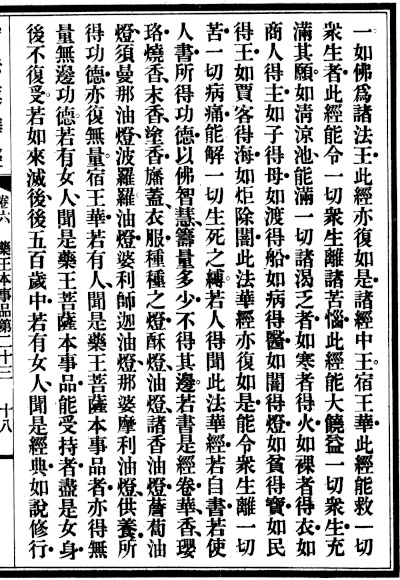 一如佛爲諸法王此經亦復如是諸經中王。宿王華此經能救一切
衆生者此經能令一切衆生離諸苦惱此經能大饒益一切衆生充
滿其願。如清涼池、能滿一切諸渴乏者如寒者得火如裸者得衣如
商人得主如子得母如渡得船如病得醫如闇得燈如貧得寶如民
得王如賈客得海如炬除闇此法華經亦復如是能令衆生離一切
苦一切病痛能解一切生死之縛。若人得聞此法華經若自書若使
人書所得功德以佛智慧籌量多少不得其邊。若書是經卷華香、瓔
珞燒香、末香、塗香、旛蓋、衣服種種之燈酥燈油燈、諸香油燈、薝蔔油
燈、須曼那油燈、波羅羅油燈、婆利師迦油燈、那婆摩利油燈、供養所
得功德亦復無量。宿王華若有人、聞是藥王菩薩本事品者亦得無
量無邊功德。若有女人、聞是藥王菩薩本事品能受持者盡是女身
後不復受。若如來滅後、後五百歲中若有女人、聞是經典如說修行
卷六 藥王本事品第二十三 十八